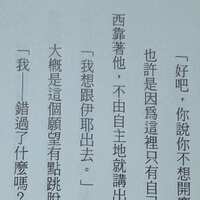 「好吧，你說你不想開
也許是因為這裡只有自
西靠著他，不由自主地就講出
「我想跟伊耶出去。」
大概是這個願望有點跳
「我——錯過了什麼嗎？